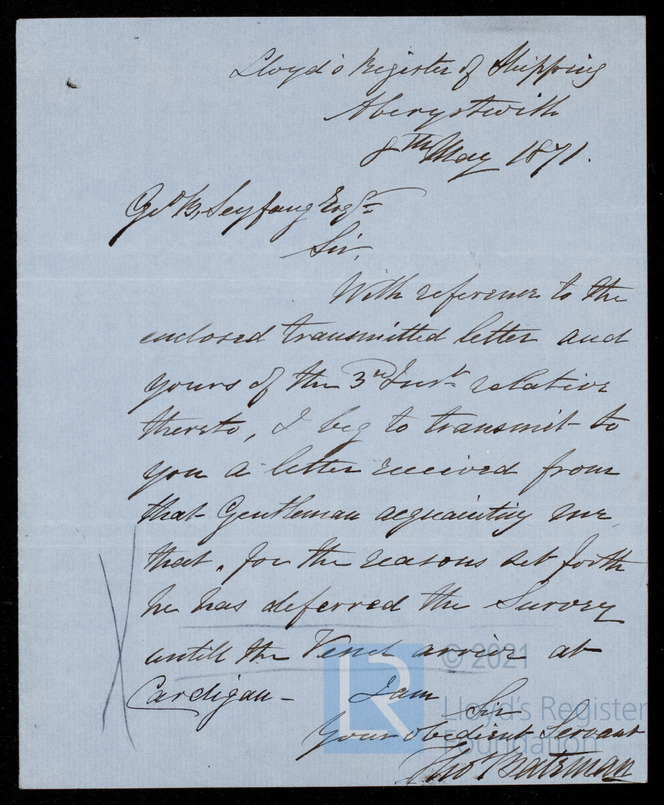 Lloyd's Register of Shipping
Aberystwith
8th May 1871.
Geo B. Seyfang Esqr
Sir,
With reference to the
enclosed transmitted letter and
yours of the 3rd Inst relative
thereto, I beg to transmit to
you a letter received from
that Gentleman acquainting me
that, for the reasons set forth
he has deferred the Survey
untill the Vessel arrives at
Cardigan -
I am
Sir
Your obedient Servant
Thos Bateman
LR © 2021
Lloyd's Register
Foundation